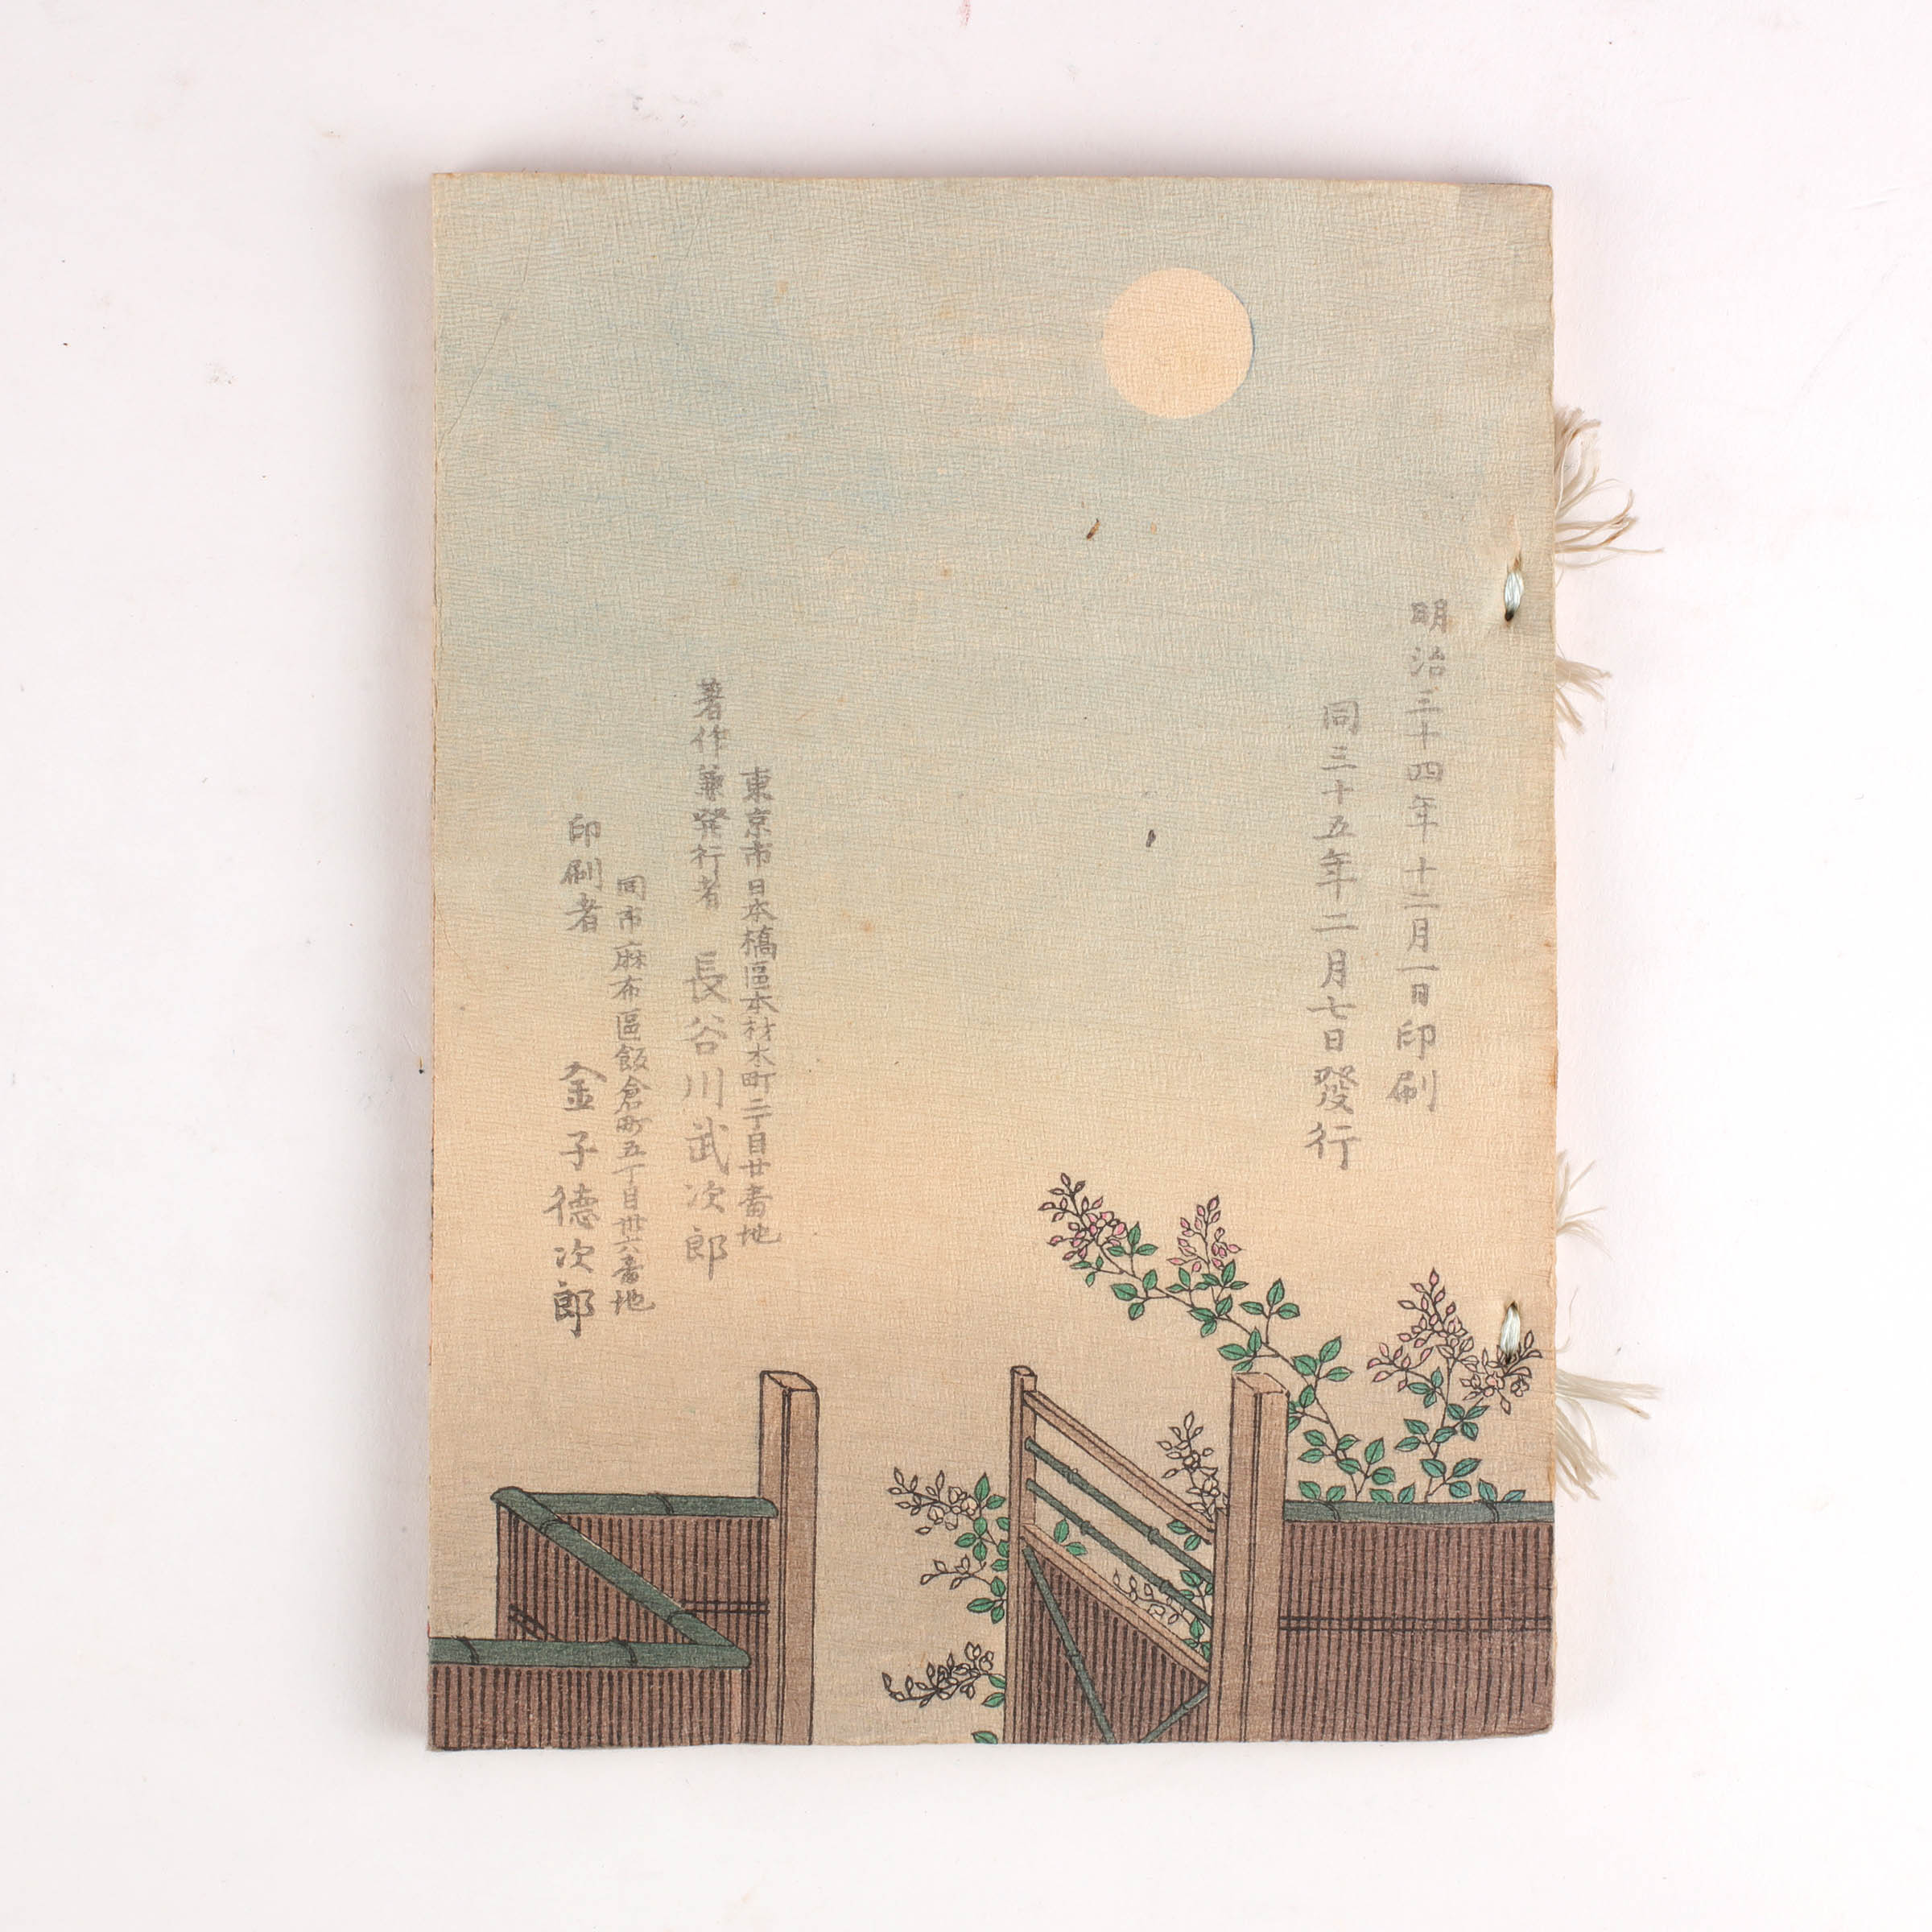 明治三十四年十二月一日印刷
同三十五年二月七日發行
東京市日本橋區本材木町二丁目廿番地
著作兼發行者 長谷川武次郎
同市麻布區飯倉町五丁目卅六番地
印刷者 金子德次郎